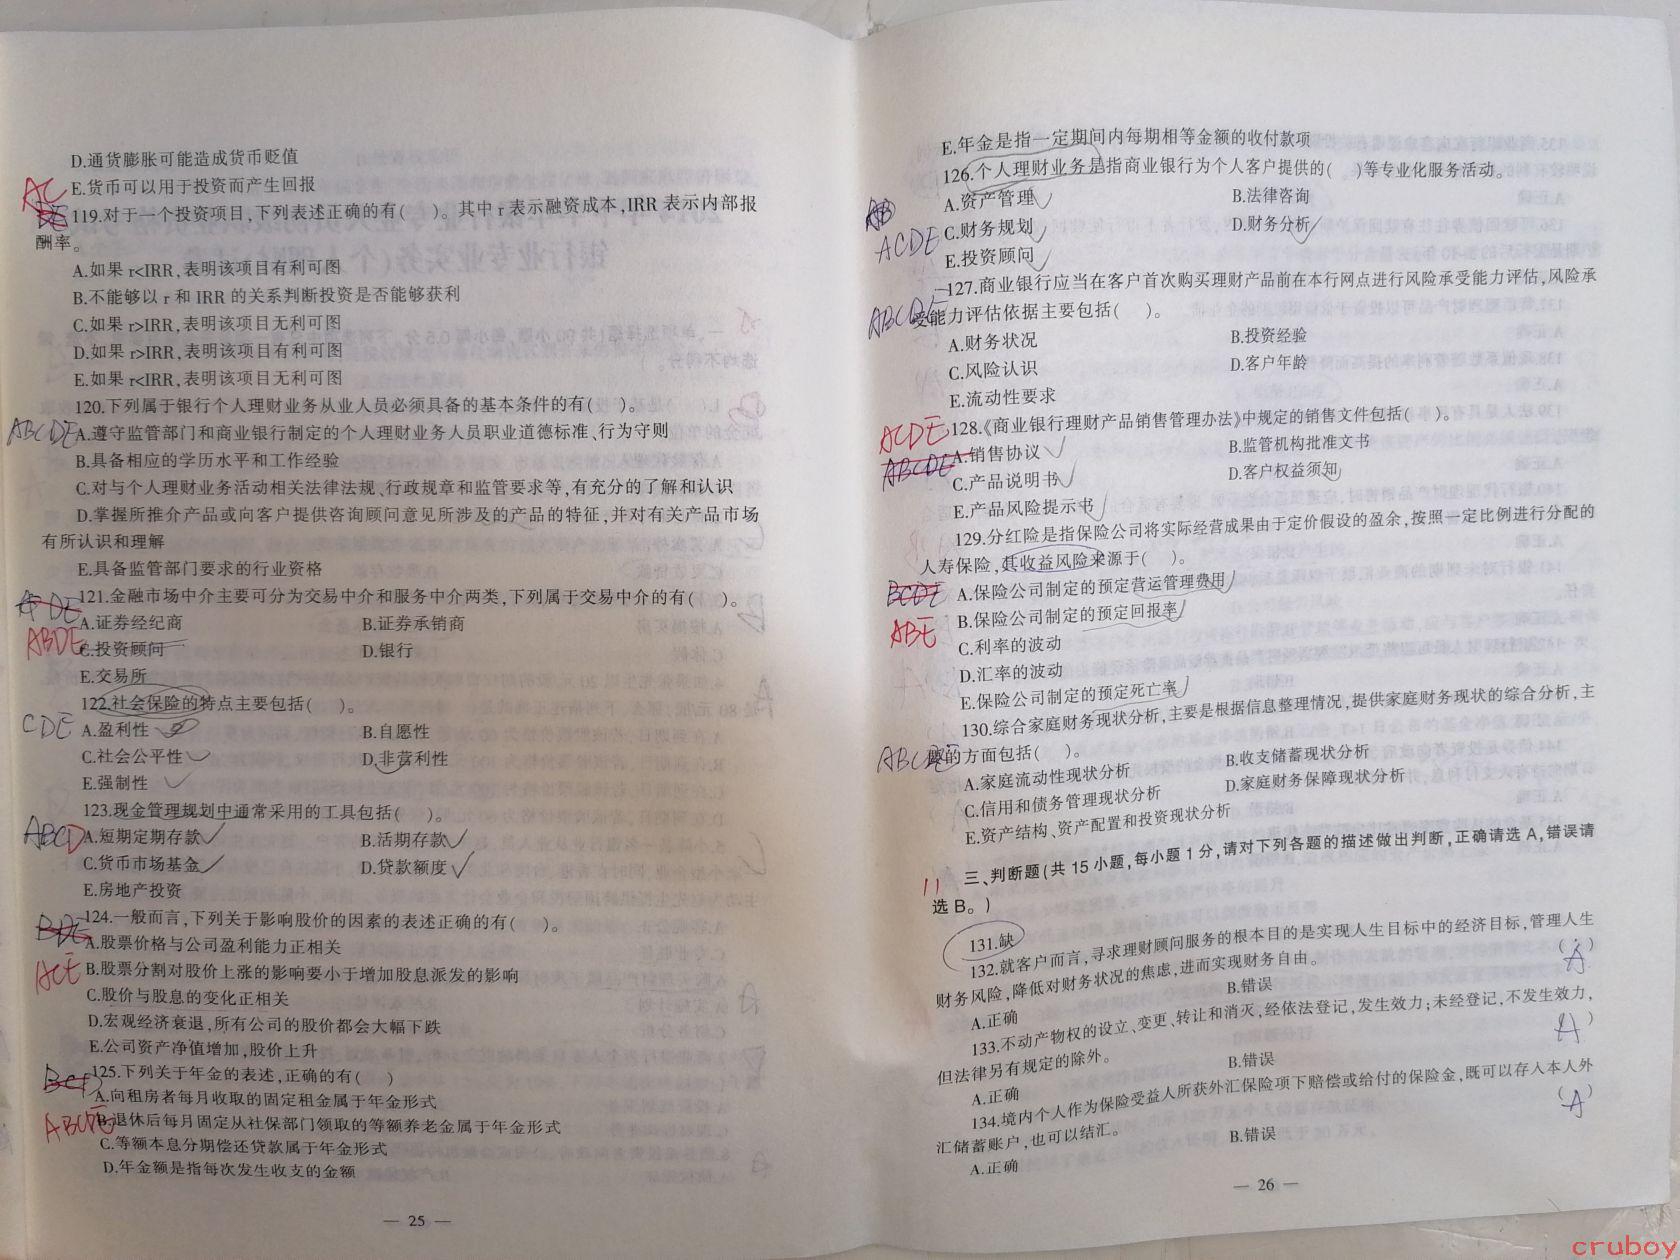 D.通货膨胀可能造成货币贬值
E.货币可以用于投资而产生回报
AC
DE
119.对于一个投资项目,下列表述正确的有(　　)。其中 r 表示融资成本,IRR 表示内部报
酬率。
A.如果 r<IRR,表明该项目有利可图
B.不能够以 r 和 IRR 的关系判断投资是否能够获利
C.如果 r>IRR,表明该项目无利可图
D.如果 r>IRR,表明该项目有利可图
E.如果 r<IRR,表明该项目无利可图
120.下列属于银行个人理财业务从业人员必须具备的基本条件的有(　　)。
ABCDE
A.遵守监管部门和商业银行制定的个人理财业务人员职业道德标准、行为守则
B.具备相应的学历水平和工作经验
C.对与个人理财业务活动相关法律法规、行政规章和监管要求等,有充分的了解和认识
D.掌握所推介产品或向客户提供咨询顾问意见所涉及的产品的特征,并对有关产品市场
有所认识和理解
E.具备监管部门要求的行业资格
121.金融市场中介主要可分为交易中介和服务中介两类,下列属于交易中介的有(　　)。
ABDE
A.证券经纪商 B.证券承销商
C.投资顾问 D.银行
E.交易所
122.社会保险的特点主要包括(　　)。
CDE
A.盈利性 B.自愿性
C.社会公平性 D.非营利性
E.强制性
123.现金管理规划中通常采用的工具包括(　　)。
ABCD
A.短期定期存款 B.活期存款
C.货币市场基金 D.贷款额度
E.房地产投资
124.一般而言,下列关于影响股价的因素的表述正确的有(　　)。
BDE
A.股票价格与公司盈利能力正相关
ACE
B.股票分割对股价上涨的影响要小于增加股息派发的影响
C.股价与股息的变化正相关
D.宏观经济衰退,所有公司的股价都会大幅下跌
E.公司资产净值增加,股价上升
125.下列关于年金的表述,正确的有(　　)
BCD
A.向租房者每月收取的固定租金属于年金形式
ABCDE
B.退休后每月固定从社保部门领取的等额养老金属于年金形式
C.等额本息分期偿还贷款属于年金形式
D.年金额是指每次发生收支的金额
— 25 —
E.年金是指一定期间内每期相等金额的收付款项
126.个人理财业务是指商业银行为个人客户提供的(　　)等专业化服务活动。
ACDE
A.资产管理 B.法律咨询
C.财务规划 D.财务分析
E.投资顾问
127.商业银行应当在客户首次购买理财产品前在本行网点进行风险承受能力评估,风险承
ABCDE
受能力评估依据主要包括(　　)。
A.财务状况 B.投资经验
C.风险认识 D.客户年龄
E.流动性要求
128.《商业银行理财产品销售管理办法》中规定的销售文件包括(　　)。
ACDE
ABCDE
A.销售协议 B.监管机构批准文书
C.产品说明书 D.客户权益须知
E.产品风险提示书
129.分红险是指保险公司将实际经营成果由于定价假设的盈余,按照一定比例进行分配的
人寿保险,其收益风险来源于(　　)。
BCDE
A.保险公司制定的预定营运管理费用
ABE
B.保险公司制定的预定回报率
C.利率的波动
D.汇率的波动
E.保险公司制定的预定死亡率
130.综合家庭财务现状分析,主要是根据信息整理情况,提供家庭财务现状的综合分析,主
ABCDE
要的方面包括(　　)。
A.家庭流动性现状分析 B.收支储蓄现状分析
C.信用和债务管理现状分析 D.家庭财务保障现状分析
E.资产结构、资产配置和投资现状分析
11
三、判断题(共 15 小题,每小题 1 分,请对下列各题的描述做出判断,正确请选 A,错误请
选 B。)
131.缺
132.就客户而言,寻求理财顾问服务的根本目的是实现人生目标中的经济目标,管理人生
财务风险,降低对财务状况的焦虑,进而实现财务自由。 (A)
A.正确 B.错误
133.不动产物权的设立、变更、转让和消灭,经依法登记,发生效力;未经登记,不发生效力,
但法律另有规定的除外。 (A)
A.正确 B.错误
134.境内个人作为保险受益人所获外汇保险项下赔偿或给付的保险金,既可以存入本人外
汇储蓄账户,也可以结汇。 (A)
A.正确 B.错误
— 26 —
cruboy